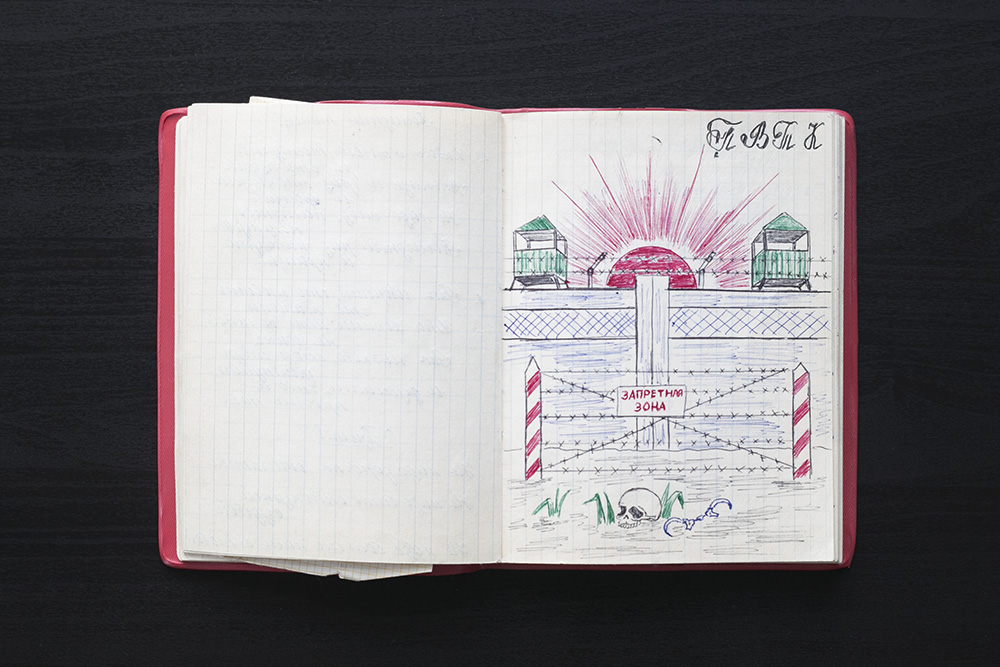 ПВТК
ЗАПРЕТНАЯ
ЗОНА